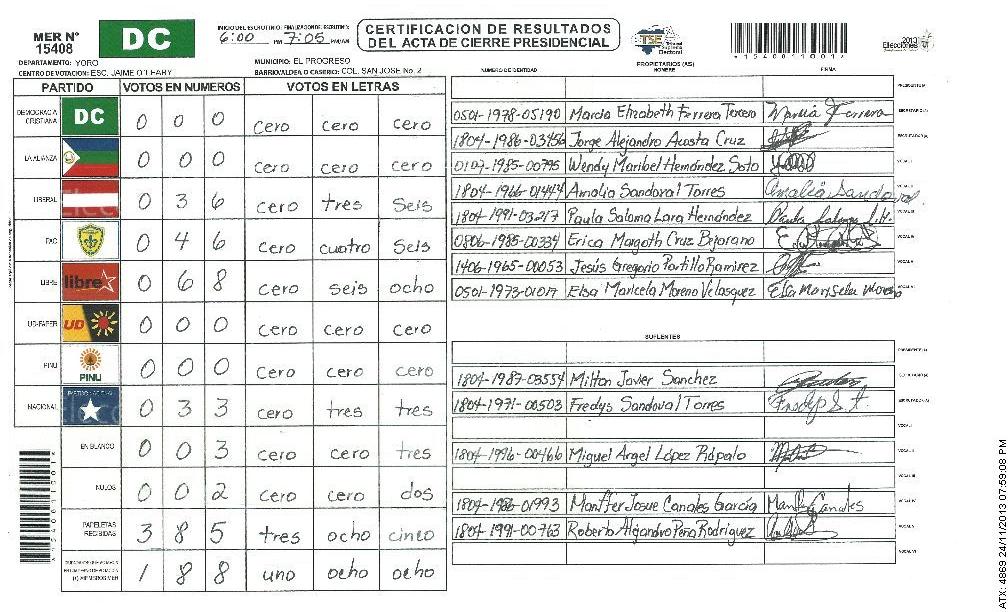 MER N° 15408
DC
INICIO DEL ESCRUTINIO: 6:00 PM FINALIZACION DEL ESCRUTINIO: 7:05 PM/AM
CERTIFICACION DE RESULTADOS
DEL ACTA DE CIERRE PRESIDENCIAL
TSE Tribunal Supremo Electoral
2013
Elecciones
DEPARTAMENTO: YORO
MUNICIPIO: EL PROGRESO
CENTRO DE VOTACION: ESC. JAIME O'LEARY
BARRIO/ALDEA O CASERIO: COL. SAN JOSE No. 2
PARTIDO VOTOS EN NUMEROS VOTOS EN LETRAS
DEMOCRACIA CRISTIANA DC 0 0 0 cero cero cero
LA ALIANZA 0 0 0 cero cero cero
LIBERAL 0 3 6 cero tres seis
PAC 0 4 6 cero cuatro seis
LIBRE libre 0 6 8 cero seis ocho
UD-FAPER UD 0 0 0 cero cero cero
PINU PINU 0 0 0 cero cero cero
NACIONAL 0 3 3 cero tres tres
EN BLANCO 0 0 3 cero cero tres
NULOS 0 0 2 cero cero dos
PAPELETAS RECIBIDAS 3 8 5 tres ocho cinco
1 8 8 uno ocho ocho
NUMERO DE IDENTIDAD
PROPIETARIOS (AS)
NOMBRE
FIRMA
0501-1978-05190 Marcia Elizabeth Ferrera Tercero Marcia Ferrera
1804-1986-03456 Jorge Alejandro Acosta Cruz
0107-1985-00795 Wendy Maribel Hernández Soto
1804-1966-01444 Amalia Sandoval Torres Amalia Sandoval
1804-1991-03217 Paula Saloma Lara Hernández
0806-1985-00334 Erica Margoth Cruz Bejarano
1406-1965-00053 Jesús Gregorio Portillo Ramirez
0501-1973-01017 Elsa Maricela Moreno Velasquez Elsa Marisela Moreno
SUPLENTES
1804-1987-03554 Milton Javier Sanchez
1804-1971-00503 Fredys Sandoval Torres
1804-1996-00466 Miguel Angel López Rápalo
1804-1986-01993 Manffer Josue Canales García Canales
1804-1991-00763 Roberto Alejandro Peña Rodriguez
ATX: 4869 24/11/2013 07:59:08 PM